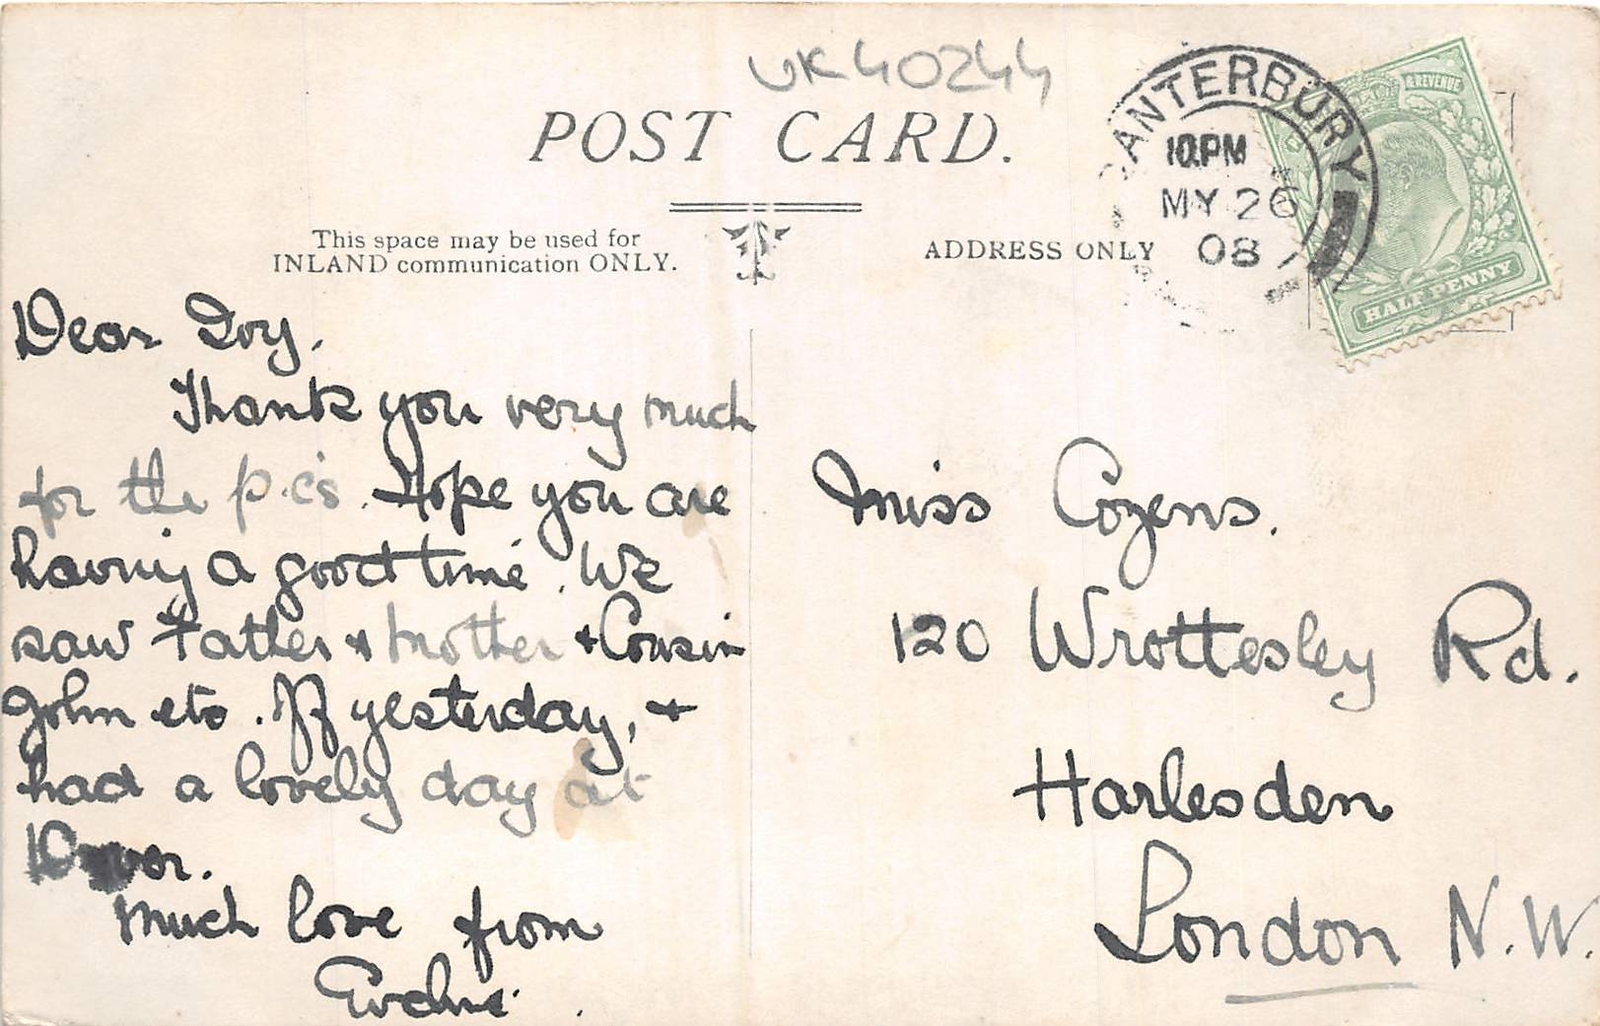 UK40244
POST CARD.
This space may be used for
INLAND communication ONLY.
ADDRESS ONLY
CANTERBURY
10.PM
MY 26
08
& REVENUE
HALF PENNY
Dear Ivy.
Thank you very much
for the p.c's. Hope you are
having a good time. We
saw Father + Mother + Cousin
John etc. off yesterday, +
had a lovely day at
Dover.
Much love from
Miss Cozens.
120 Wrottesley Rd.
Harlesden
London N.W.